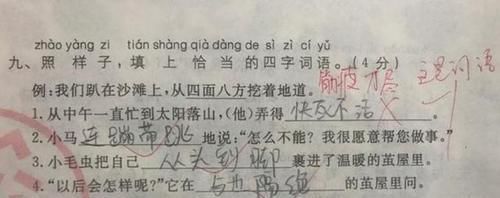 zhào yàng zi tián shàng qià dàng de sì zì cí yǔ
九、照样子,填上恰当的四字词语。(4分)
筋疲力尽 主是词语
例:我们趴在沙滩上,从四面八方挖着地道。
1.从中午一直忙到太阳落山,(他)弄得快反不活
2.小马连蹦带跳地说:“怎么不能?我很愿意帮您做事。”
3.小毛虫把自己从头到脚裹进了温暖的茧屋里。
4.“以后会怎样呢?”它在与世隔绝的茧屋里问。